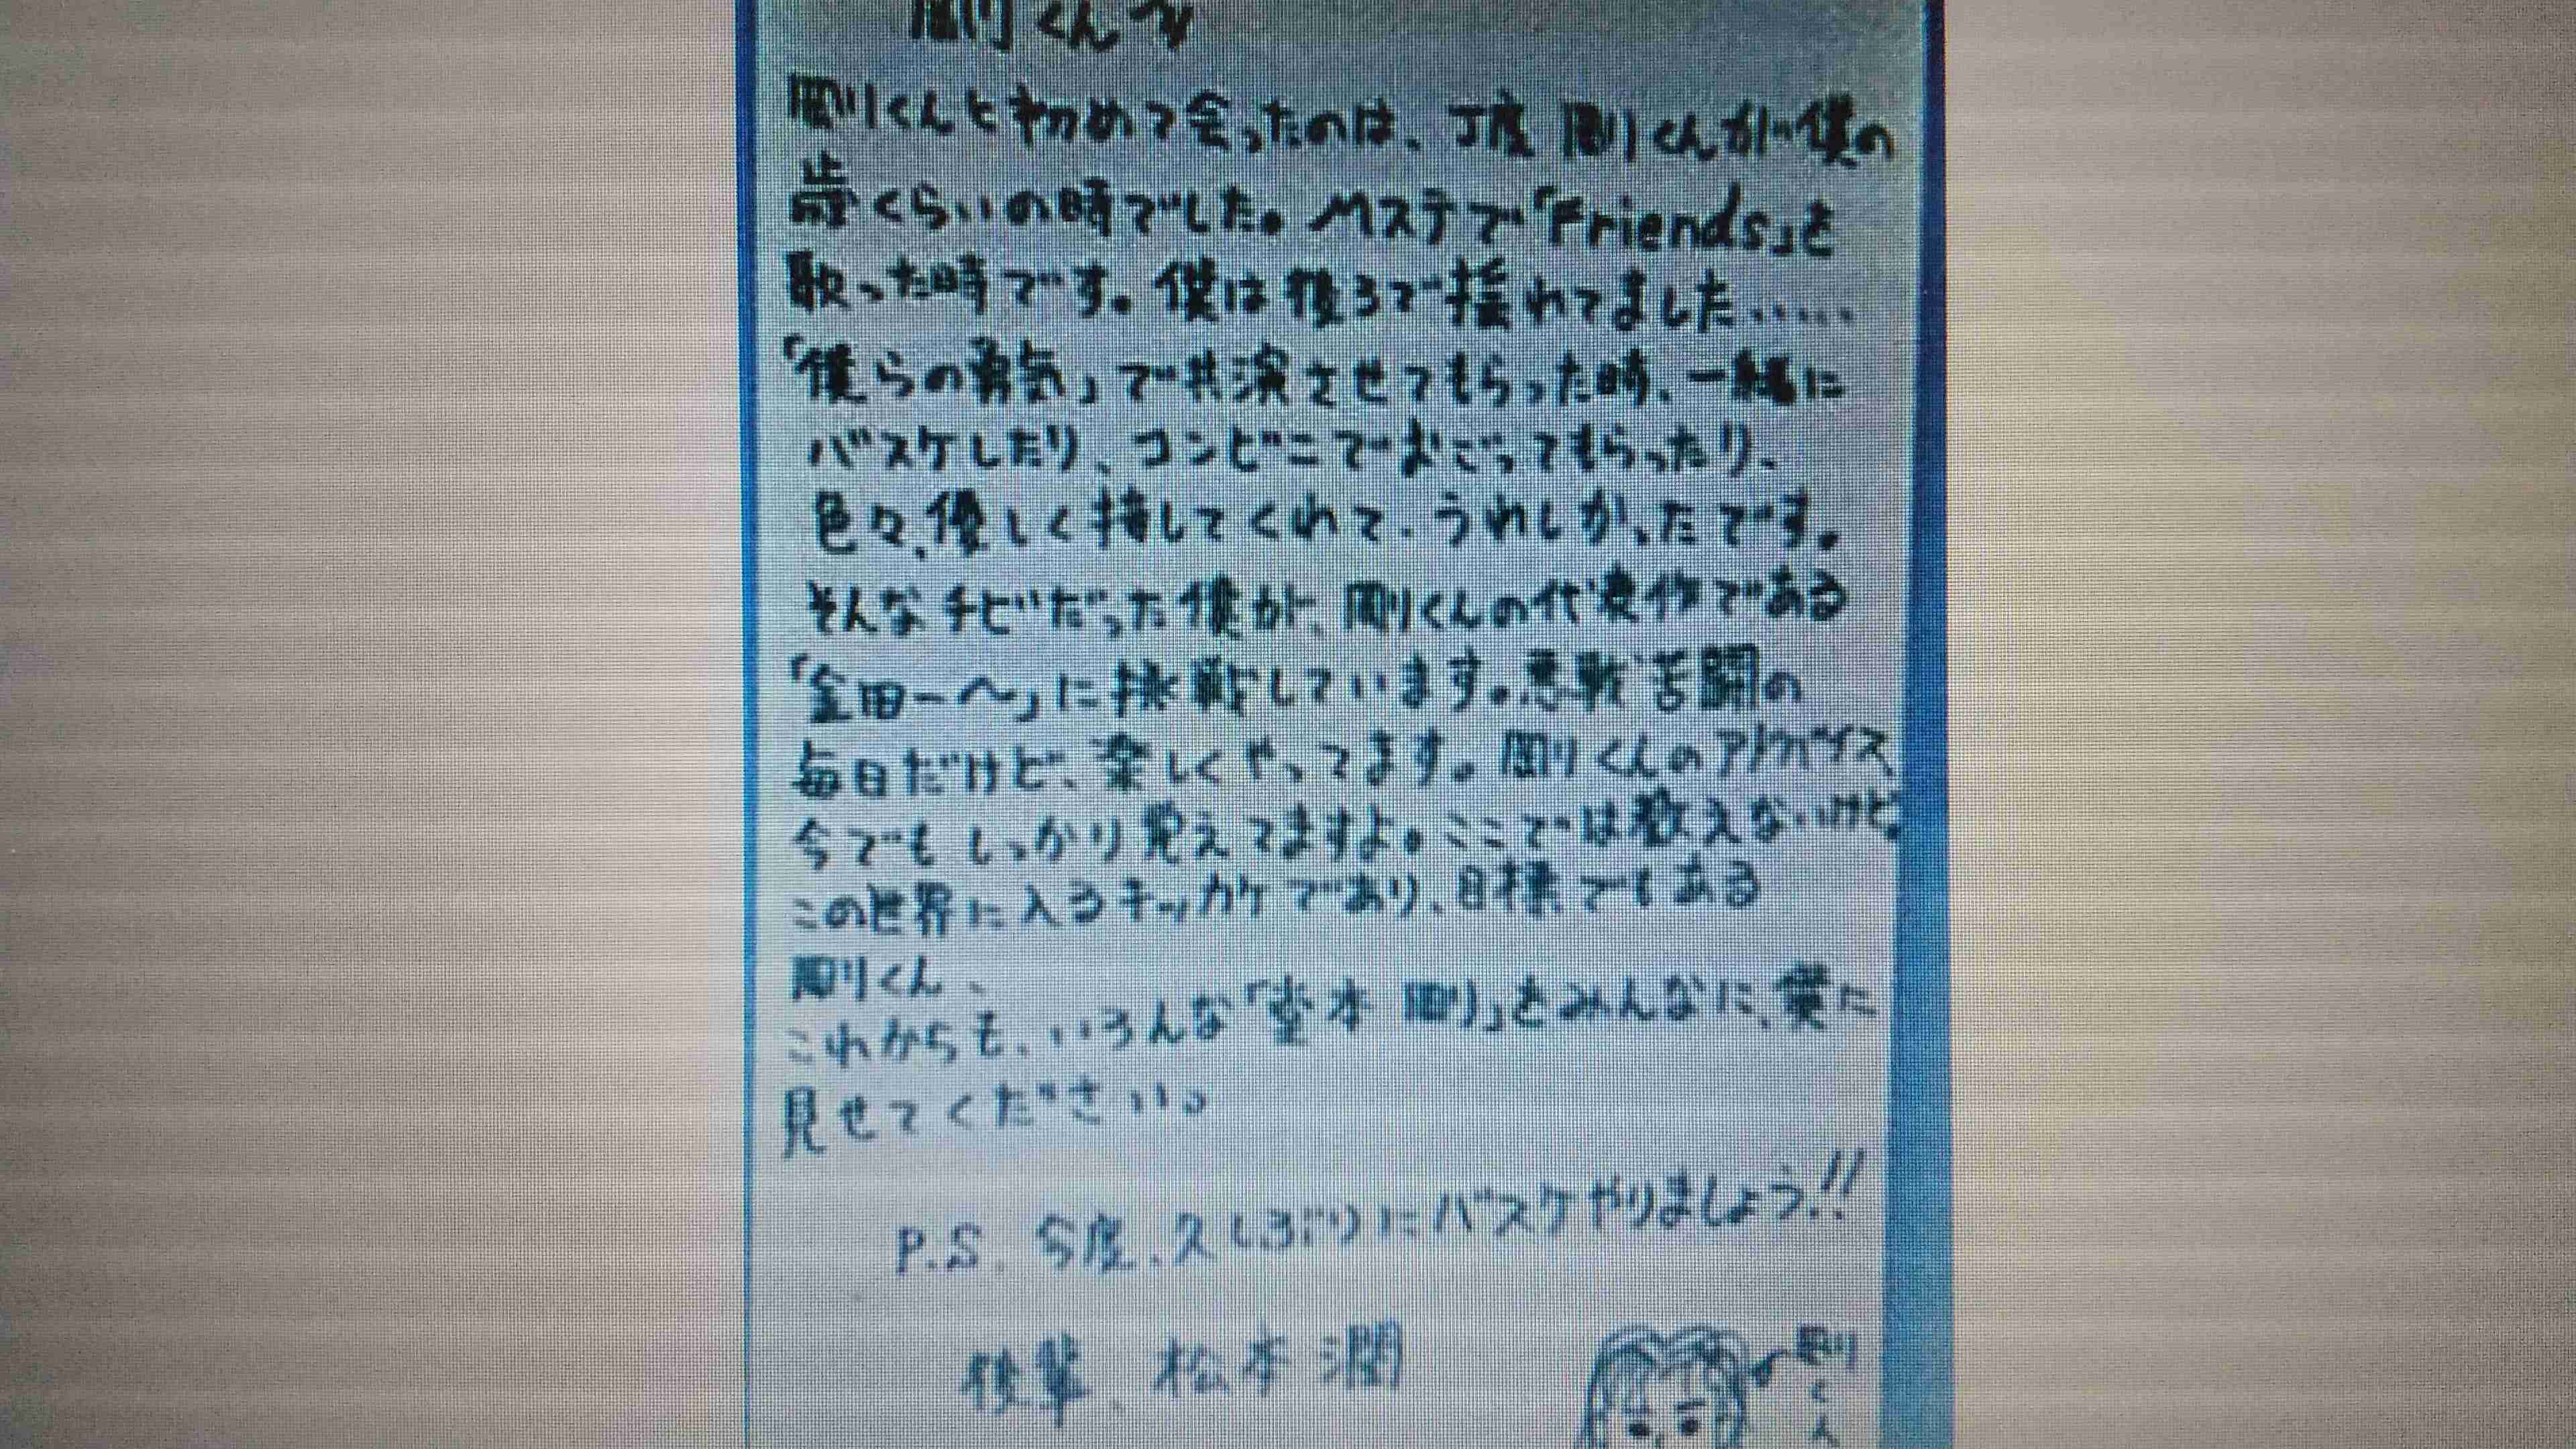 剛くんへ
剛くんと初めて会ったのは、丁度 剛くんが僕の
歳くらいの時でした。Mステで「Friends」を
歌った時です。僕は後ろで揺れてました.....
「僕らの勇気」で共演させてもらった時、一緒に
バスケしたり、コンビニでおごってもらったり、
色々、優しく接してくれて、うれしかったです。
そんなチビだった僕が、剛くんの代表作である
「金田一〜」に挑戦しています。悪戦苦闘の
毎日だけど、楽しくやってます。剛くんのアドバイス
今でもしっかり覚えてますよ。ここでは教えないけど。
この世界に入るキッカケであり、目標でもある
剛くん、
これからも、いろんな「堂本 剛」をみんなに、僕に
見せてください。
P.S. 今度、久しぶりにバスケやりましょう!!
後輩、松本潤
剛くん